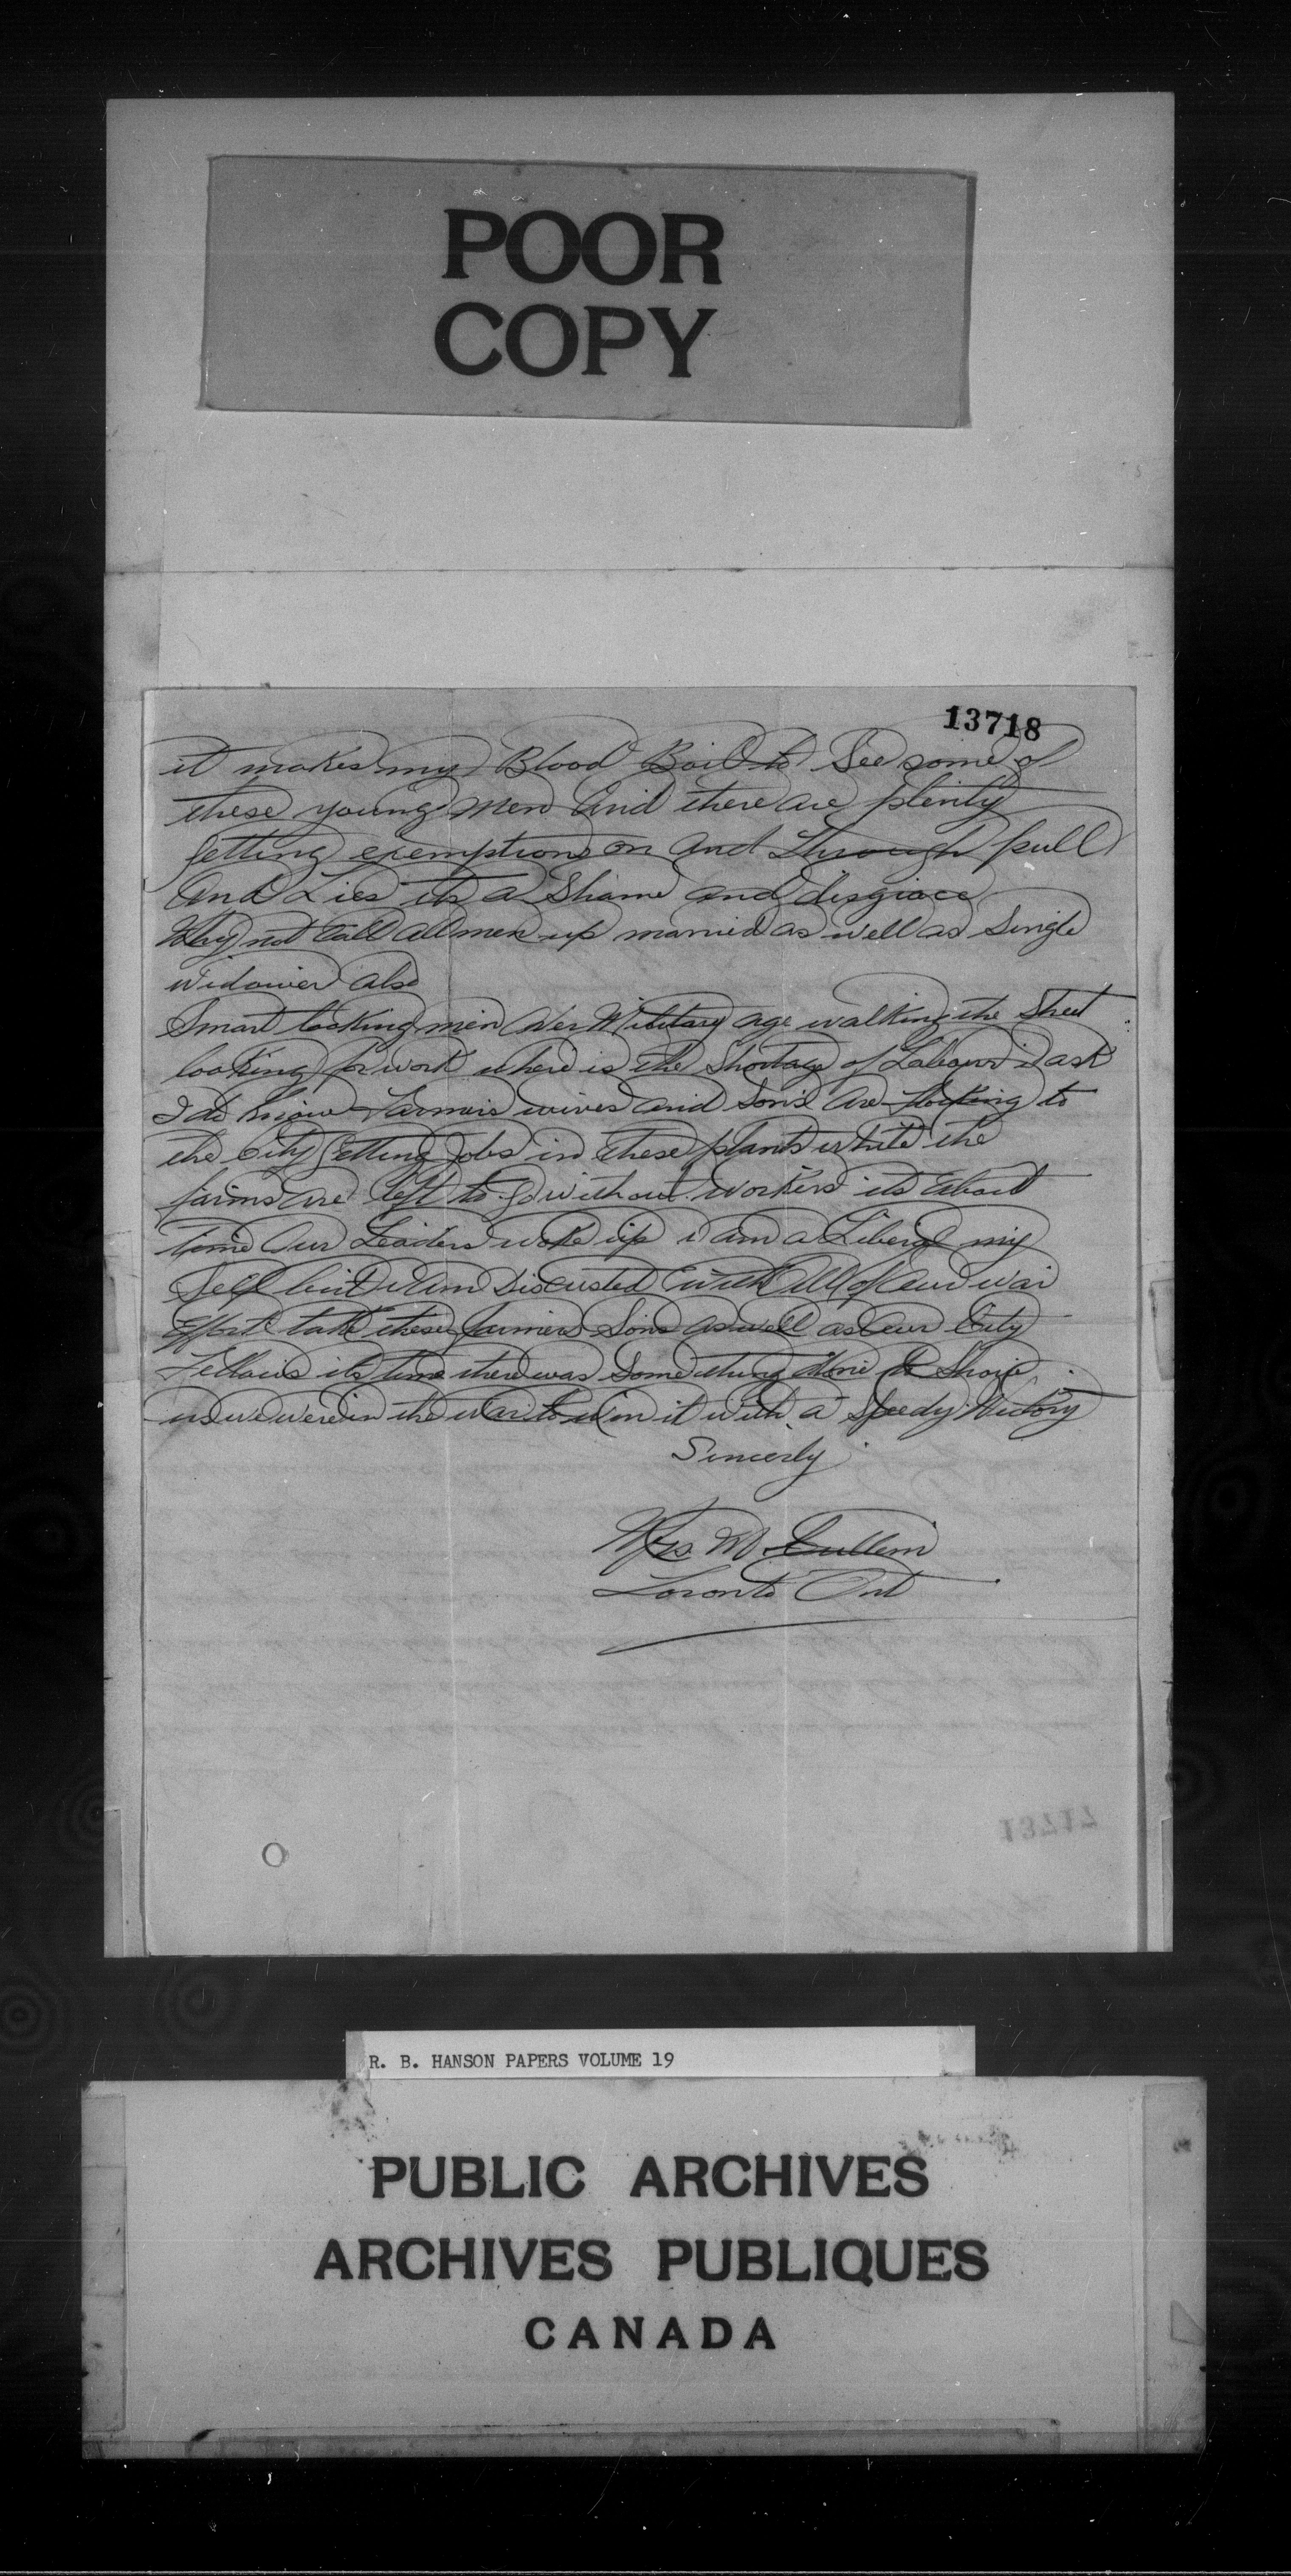 POOR
COPY
13718
it makes my Blood Boil to See some of
these young men and there are plenty
getting exemptions on and Through pull
And Lies its a Shame and disgrace
Why not Call all men up married as well as Single
widower also
Smart looking men over Military age walking the Street
looking for work where is the Shortage of Labour i ask
I do know farmers wives and Sons are flocking to
the City Getting Jobs in these plants while the
farms are left to go without workers its about
time Our Leaders woke up i am a Liberal my
Self but i am Discusted with All of our war
Effort take these farmers Sons as well as our City
Fellows its time there was Something done to Show
us we were in the war to win it with a Speedy Victory
Sincerly
Mrs. M. Cullem
Toronto Ont
13717
R. B. HANSON PAPERS VOLUME 19
PUBLIC ARCHIVES
ARCHIVES PUBLIQUES
CANADA